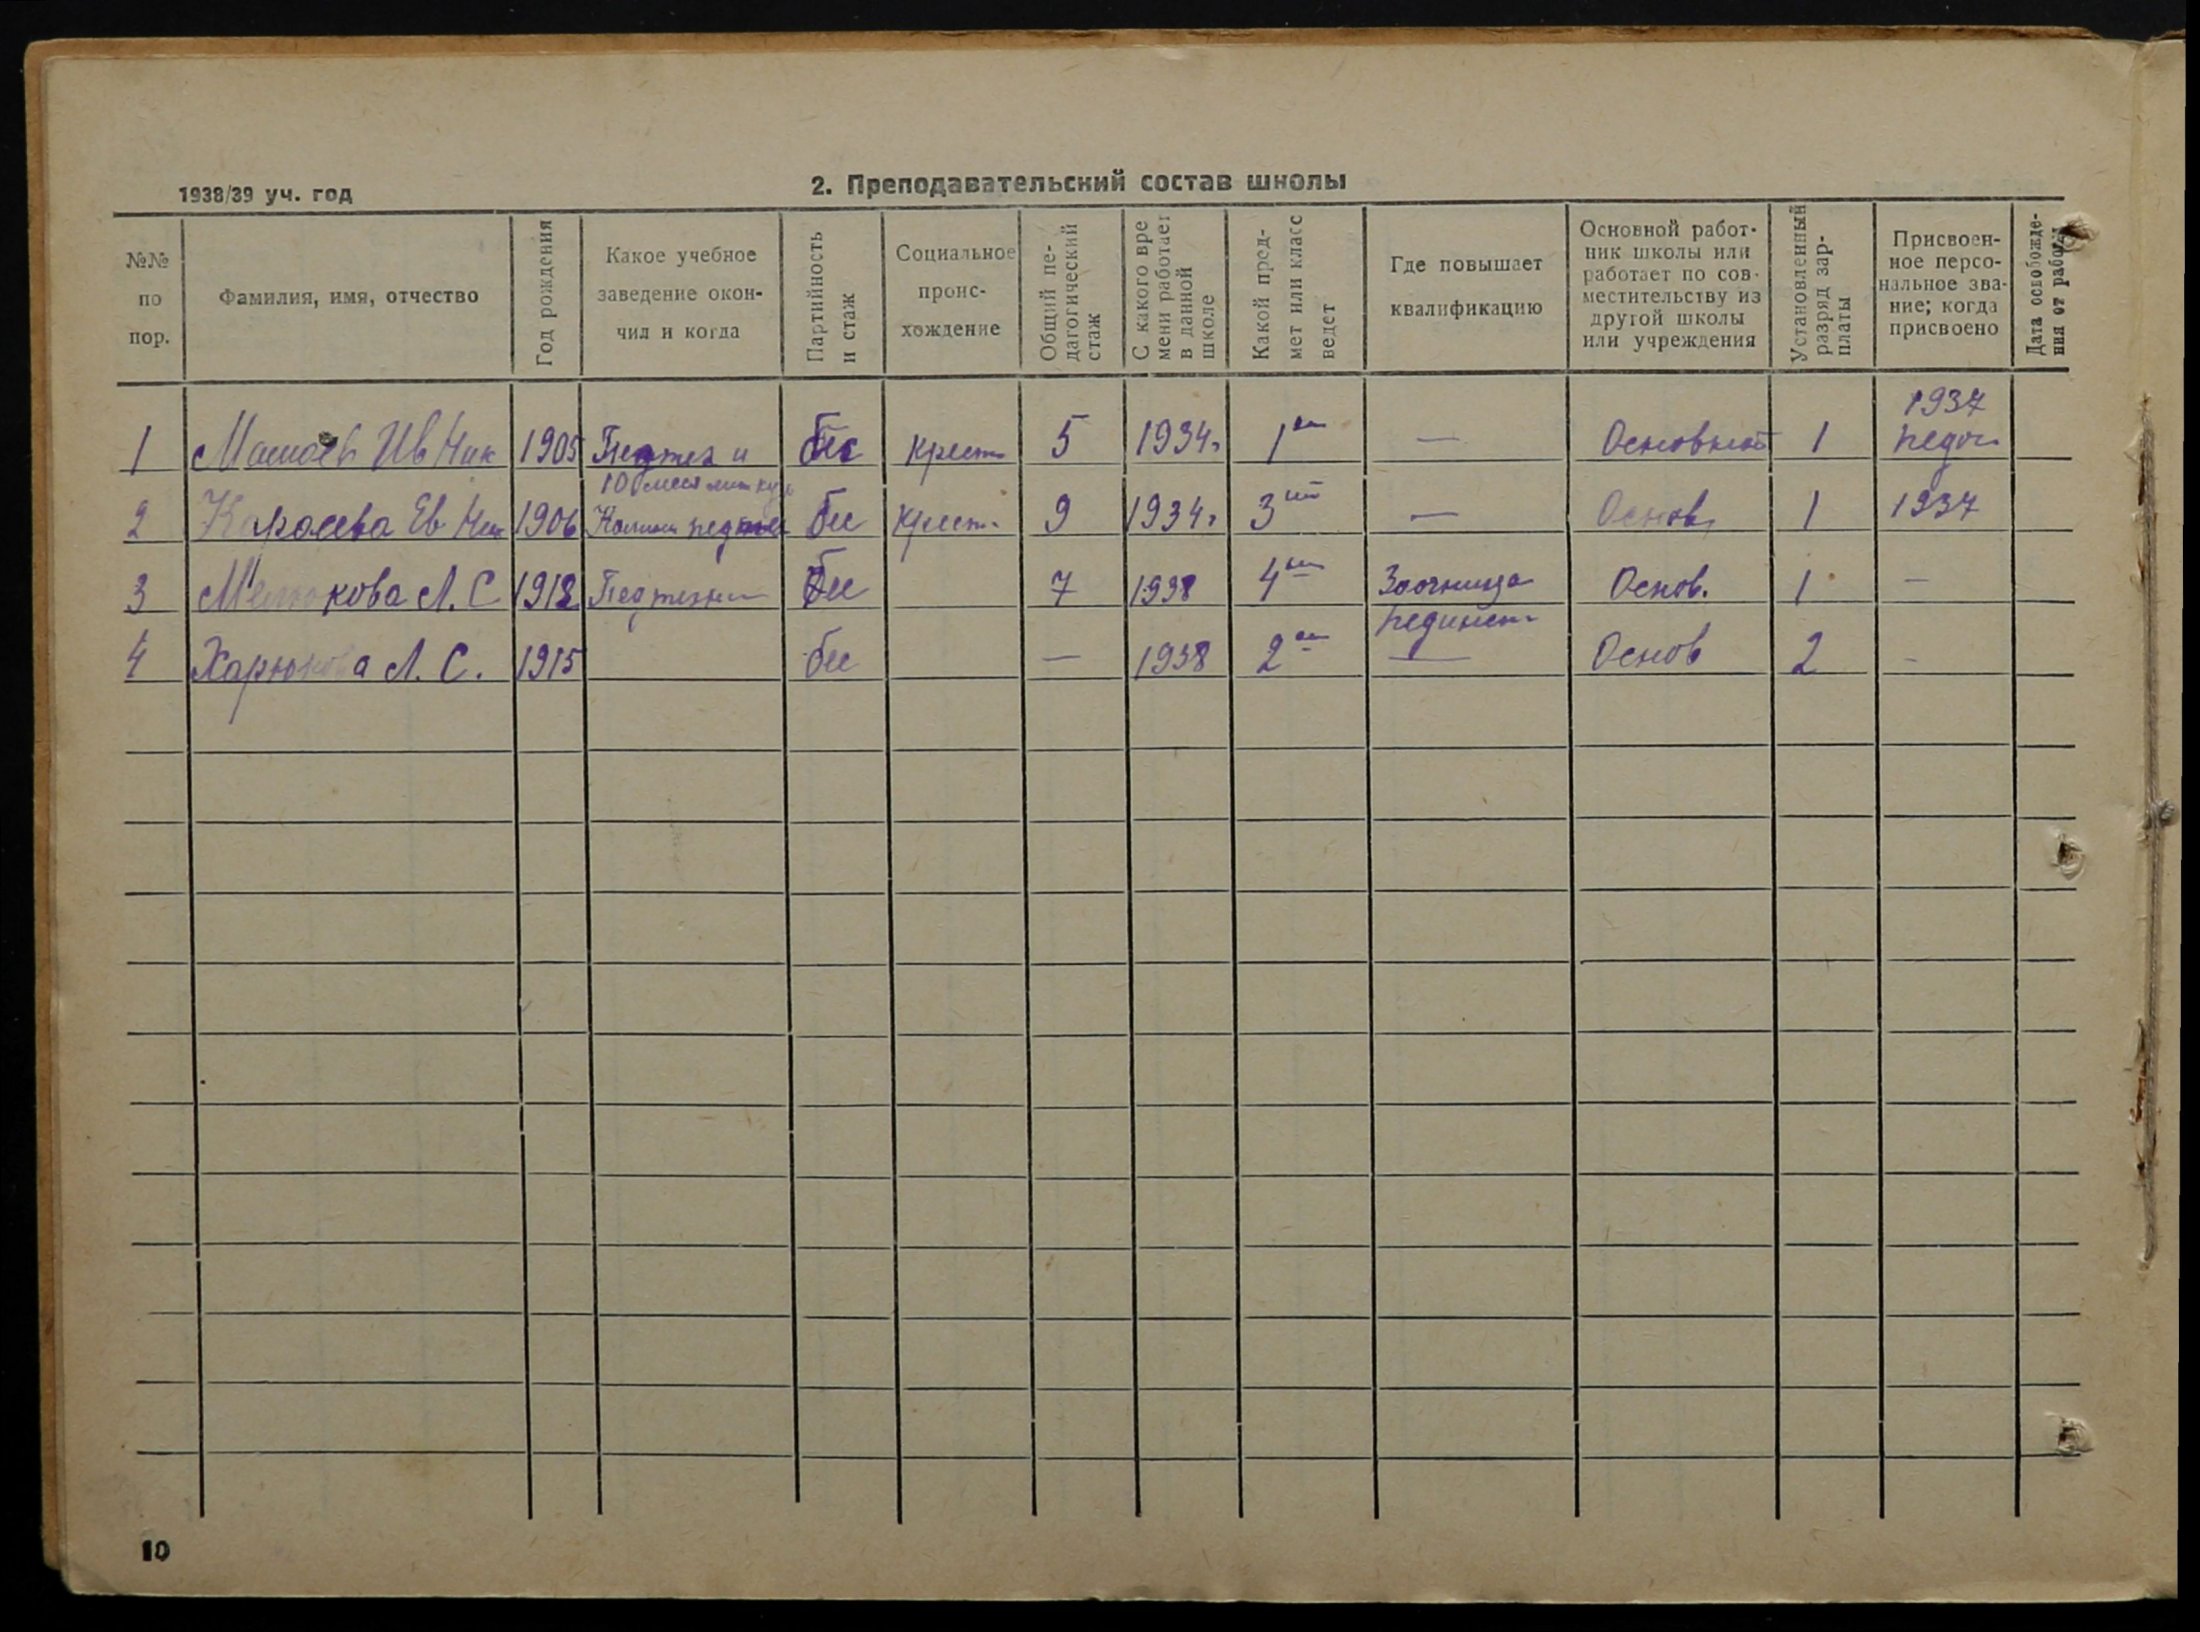 1938/39 уч. год
2. Преподавательский состав школы
№№ по пор.
Фамилия, имя, отчество
Год рождения
Какое учебное заведение окончил и когда
Партийность и стаж
Социальное происхождение
Общий педагогический стаж
С какого времени работает в данной школе
Какой предмет или класс ведет
Где повышает квалификацию
Основной работник школы или работает по совместительству из другой школы или учреждения
Установленный разряд зарплаты
Присвоенное персональное звание; когда присвоено
Дата освобождения от работы
1 Ив Ник 1905 Педтех и бес крест 5 1934г 1 — Основной 1 1937
2 Карасева Ев 1906 бес крест. 9 1934г 3 — Основ. 1 1937
3 А. С 1918 Педтехни бес 7 1938 4 Заочница Основ. 1 —
пединст
4 Харюкова А. С. 1915 бес — 1938 2 — Основ 2 —
10